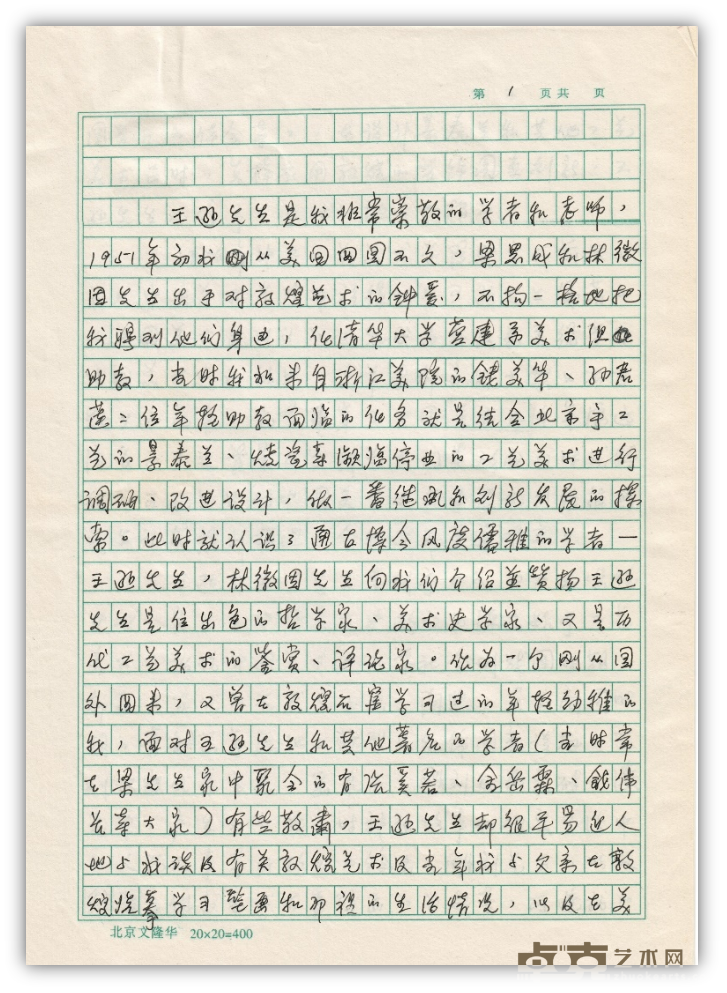 第 1 页共 页
王逊先生是我非常崇敬的学者和老师，
1951年初我刚从美国回国不久，梁思成和林徽
因先生出于对敦煌艺术的钟爱，不拘一格地把
我聘到他们身边，任清华大学营建系美术组
助教，当时我和来自浙江美院的钱美华、孙君
莲二位年轻助教面临的任务就是结合北京手工
艺的景泰兰、烧瓷等濒临停业的工艺美术进行
调研、改进设计，做一番继承和创新发展的探
索。此时就认识了通古博今风度儒雅的学者—
王逊先生，林徽因先生向我们介绍并赞扬王逊
先生是位出色的哲学家、美术史学家、又是历
代工艺美术的鉴赏、评论家。作为一个刚从国
外回来，又曾在敦煌石窟学习过的年轻幼稚的
我，面对王逊先生和其他著名的学者（当时常
在梁先生家中聚会的有张奚若、金岳霖、钱伟
长等大家）有些敬肃，王逊先生却很平易近人
地与我谈及有关敦煌艺术及当年我与父亲在敦
煌临摹学习壁画和那段的生活情况，以及在美
北京文隆华 20×20=400
艺术网